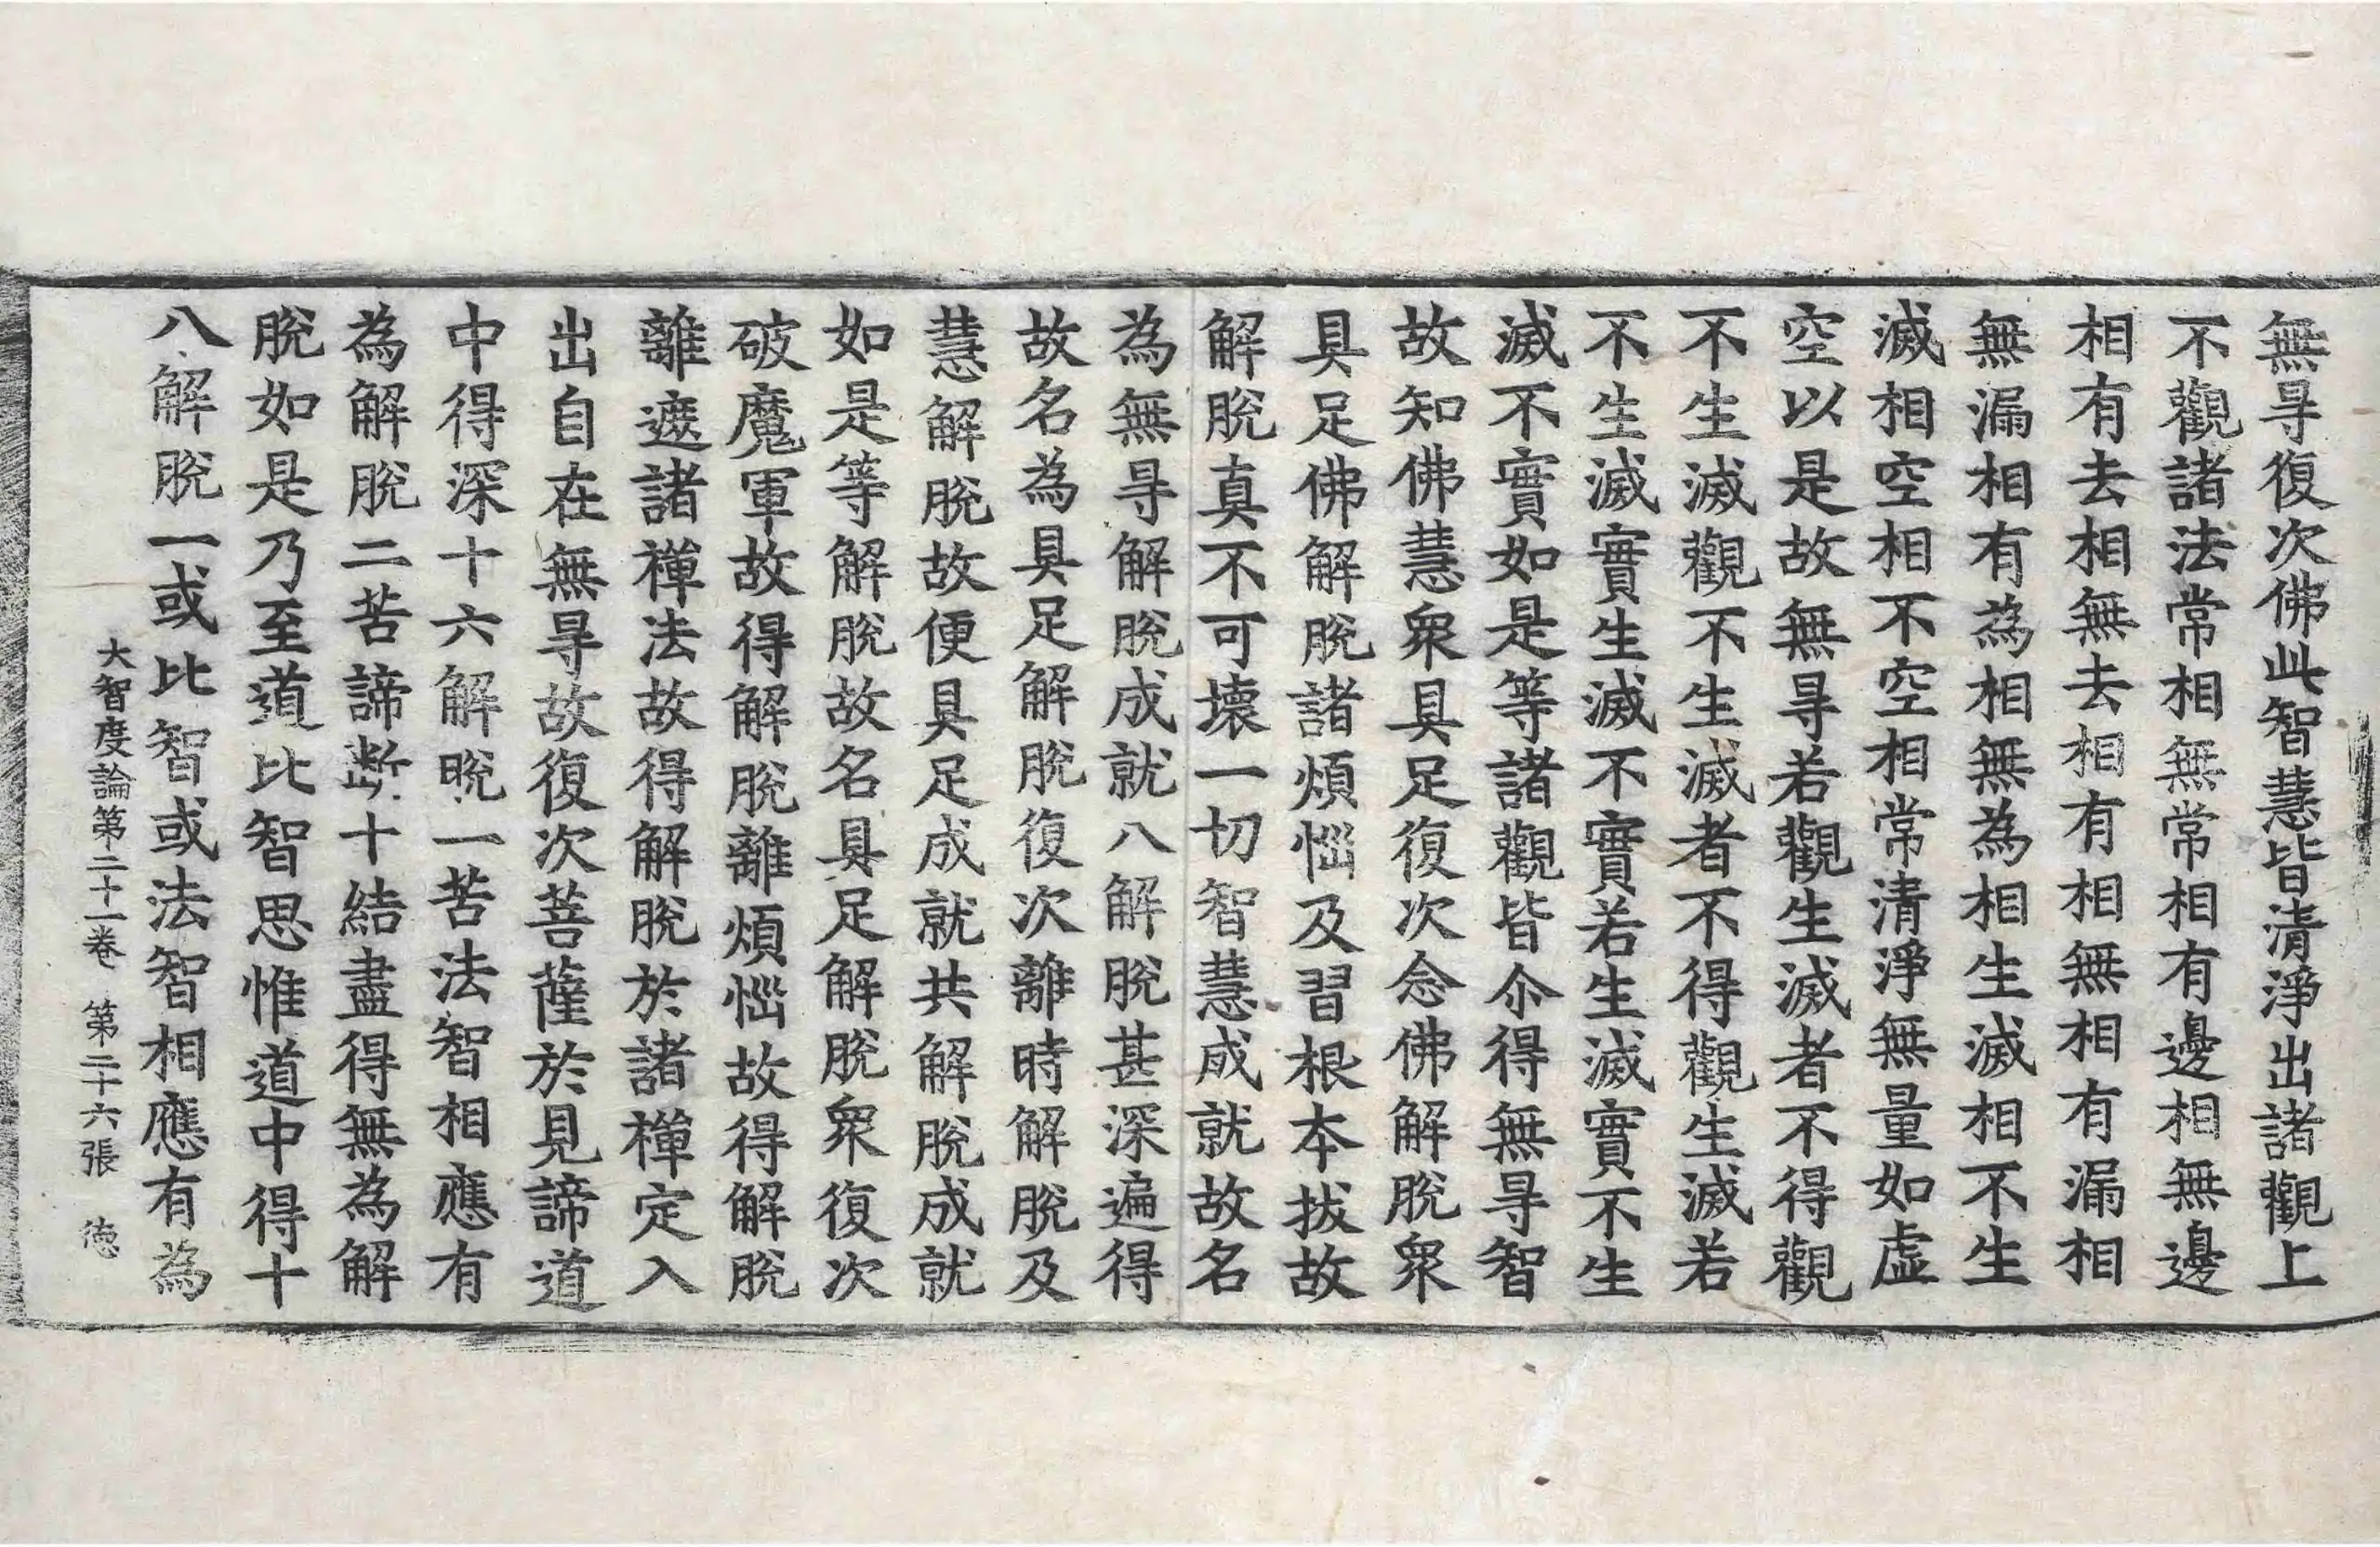 無㝵復次佛此智慧皆清淨出諸觀上
不觀諸法常相無常相有邊相無邊
相有去相無去相有相無相有漏相
無漏相有為相無為相生滅相不生
滅相空相不空相常清淨無量如虛
空以是故無㝵若觀生滅者不得觀
不生滅觀不生滅者不得觀生滅若
不生滅實生滅不實若生滅實不生
滅不實如是等諸觀皆尒得無㝵智
故知佛慧衆具足復次念佛解脫衆
具足佛解脫諸煩惱及習根本拔故
解脫真不可壞一切智慧成就故名
為無㝵解脫成就八解脫甚深遍得
故名為具足解脫復次離時解脫及
慧解脫故便具足成就共解脫成就
如是等解脫故名具足解脫衆復次
破魔軍故得解脫離煩惱故得解脫
離遮諸禪法故得解脫於諸禪定入
出自在無㝵故復次菩薩於見諦道
中得深十六解脫一苦法智相應有
為解脫二苦諦斷十結盡得無為解
脫如是乃至道比智思惟道中得十
八解脫一或比智或法智相應有為
大智度論第二十一卷 第二十六張 德